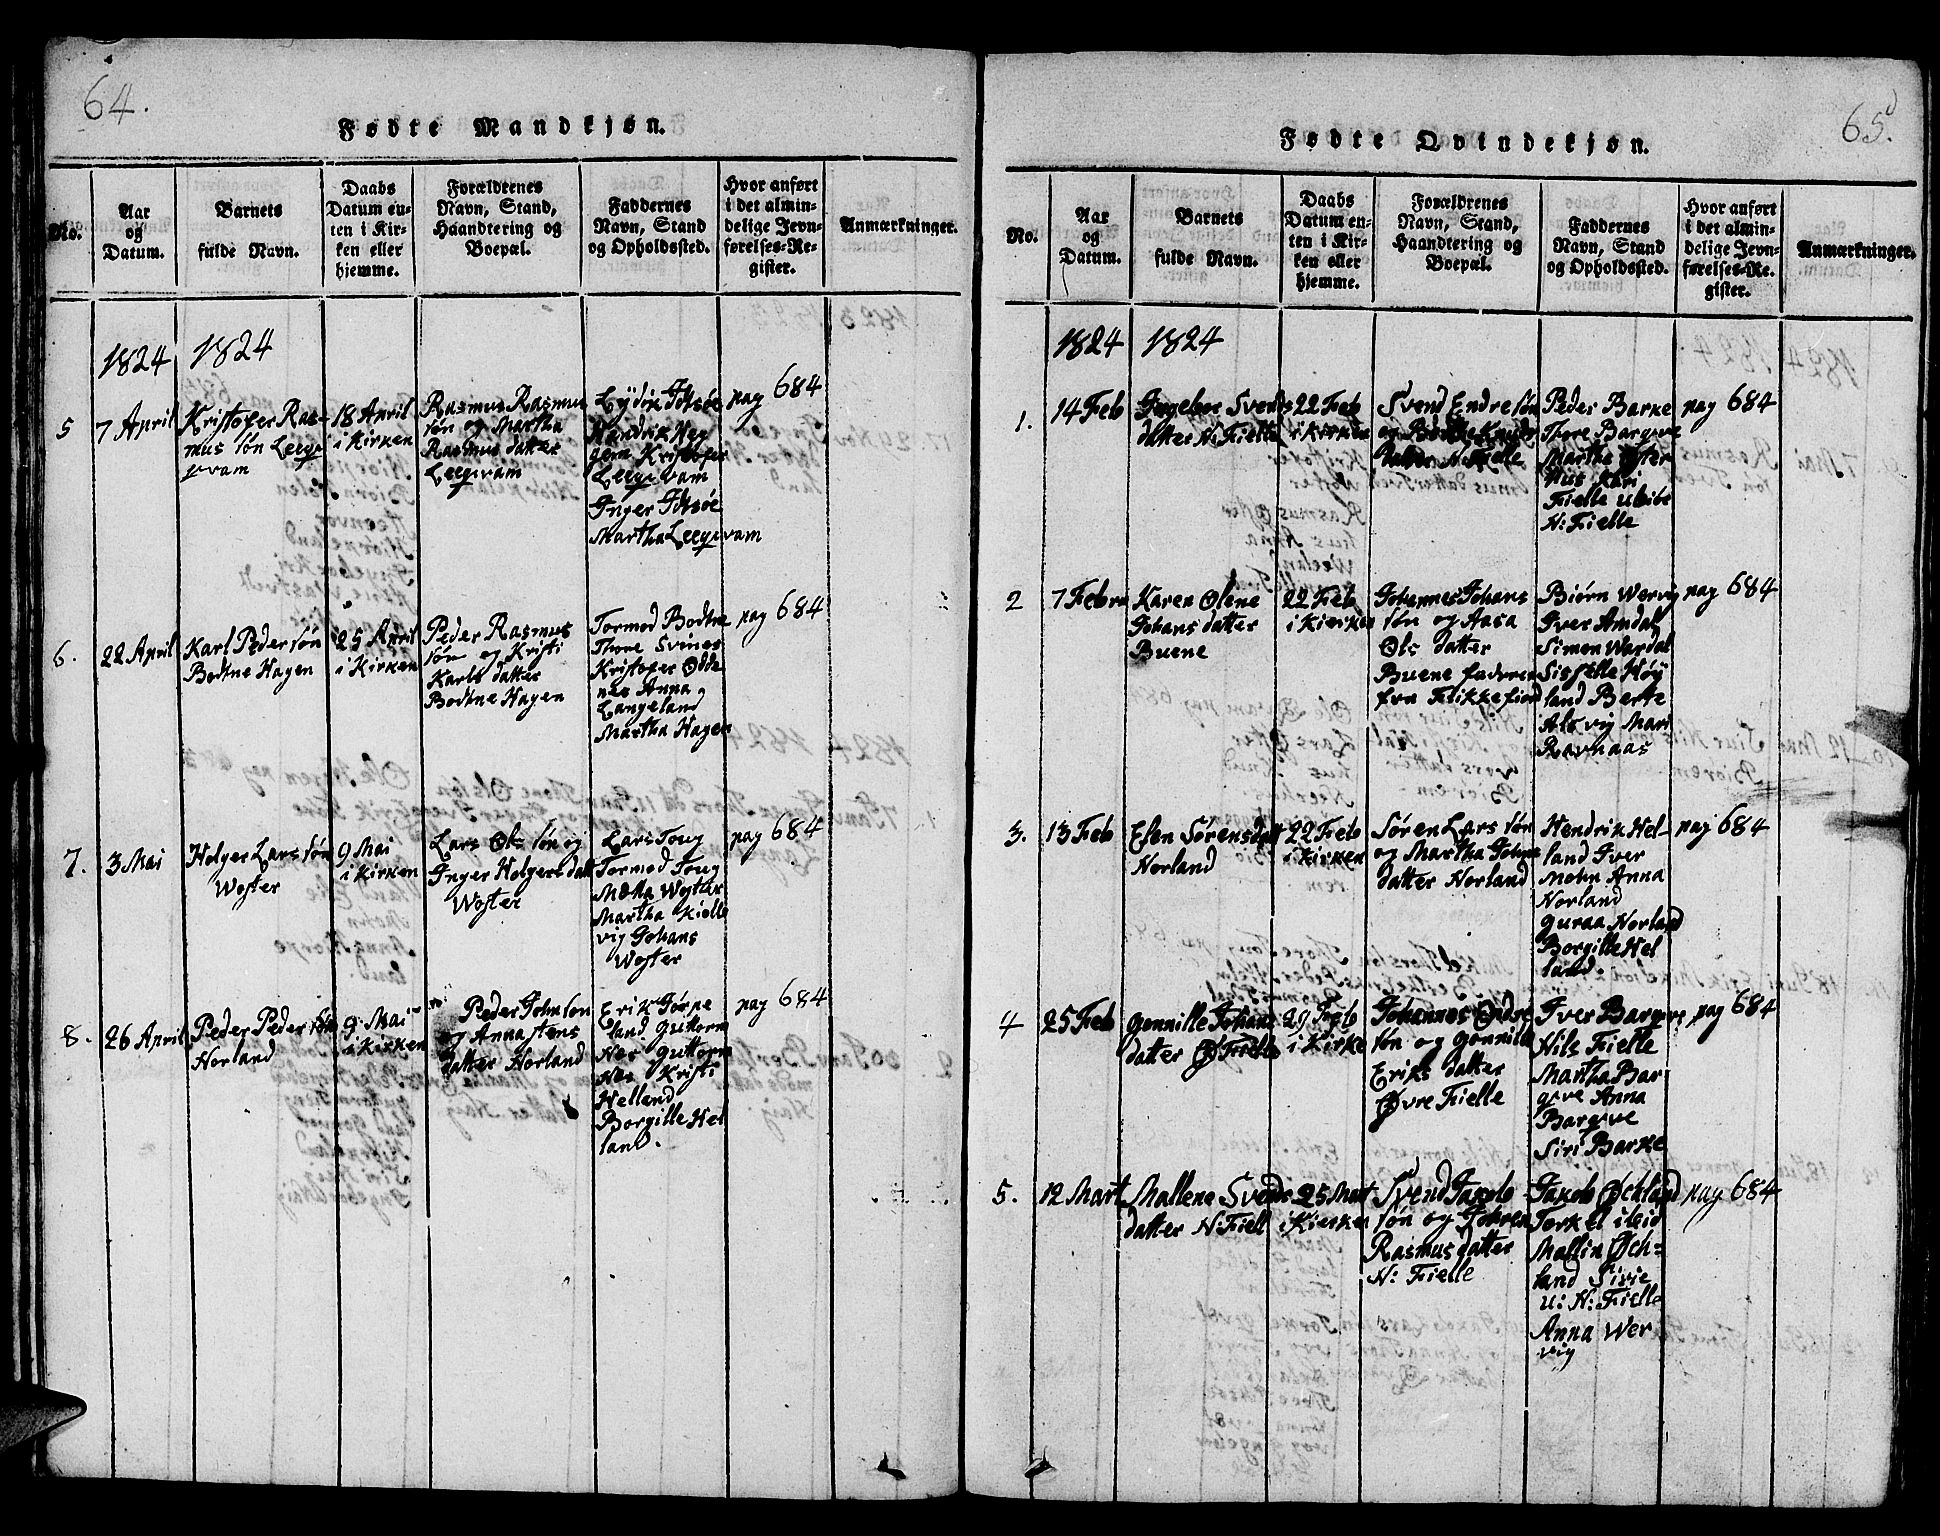 64.
Fødte Mandkjøn.
No.
Aar
og
Datum.
Barnets
fulde Navn.
Daabs
Datum en-
ten i Kir-
ken eller
hjemme.
Forældrenes
Navn, Stand,
Haandtering og
Boepæl.
Faddernes
Navn, Stand
og Opholdssted.
Hvor anført
i det almin-
delige Jevn-
førelses-Re-
gister.
Anmærkninger.
1824
1824
5
7 April
Kristofer Ras-
mus søn Leege
qvam
18 April
i Kirken
Rasmus Rasmus
søn og Martha
Rasmus datter
Leeqvam
Hendrik Heg
gem Kristofer
Leeqvam
Inger Idsøe
Martha Leeqvam
pag 684
6.
22 April
Karl Peder søn
Bodtne Hagen
25 April
i Kirken
Peder Rasmus
søn og Kristi
Karls datter
Bodtne Hagen
Tormod Bodtne
Thore Svines
Kristofer Odde
nes Anna
Langeland
Martha Hagen
pag 684
7.
3 Mai
Holger Lars søn
Woster
9 Mai
i Kirken
Lars Ols søn og
Inger Holgers datt
Woster
Lars Toug
Tormod Toug
Martha Kielle
vig Johans
Woster
pag 684
8.
26 April
Peder Peder søn
Norland
9 Mai
i Kirken
Peder John søn
og Anna Stens
datter Norland
Erik Tørpe
land Guttorm
Nes Guttorm
Nes Kristi
Helland
Borgille Hel
land.
pag 684
65.
Fødte Qvindekjøn.
No.
Aar
og
Datum.
Barnets
fulde Navn.
Daabs
Datum en-
ten i Kir-
ken eller
hjemme.
Forældrenes
Navn, Stand,
Haandtering og
Boepæl.
Faddernes
Navn, Stand
og Opholdssted.
Hvor anført
i det almin-
delige Jevn-
førelses-Re-
gister.
Anmærkninger.
1824
1824
1.
14 Feb
Ingebor Svends
datter N: Fielle
22 Feb
i Kirken
Svend Endre søn
og Berthe Knuds
datter N: Fielle
Peder Barke
Thore Barqve
Martha Øster
hus Kari
Fielle
N: Fielle
pag 684
2
7 Febru
Karen Olene
Johans datter
Buene
22 Feb
i Kierken
Johannes Johans
søn og Aasa
Ols datter
Buene faderen
fra Flikkefiord
Biørn Wervig
Iver Amdal
Simon Wardal
Sisselle Høy
land Berte
Alsvig Mari
Ravnaas
pag 684
3.
13 Feb
Elen Sørens datt
Norland
22 Feb
i Kirken
Søren Lars søn
og Martha Johns
datter Norland
Hendrik Hel-
land Iver
Mohn Anna
Norland
Guraa Norland
Borgille Hel
land.
pag 684
4
25 Feb
Gonnille Johans
datter Ø Fielle
29 Feb
i Kirke
Johannes Endre
søn og Gonnille
Eriks datter
Øvre Fielle
Iver Barqve
Nils Fielle
Martha Bar
qve Anna
Barqve
Siri Barke
pag 684
5.
12 Mart
Mallene Svends
datter N: Fiell
25 Mart
i Kierken
Svend Jakob
søn og Johren
Rasmus datter
N: Fielle
Jakob Øckland
Torkel i Lid
Mallin Øch-
land Sirie
u: N: Fielle
Anna Wer
vig
pag 684